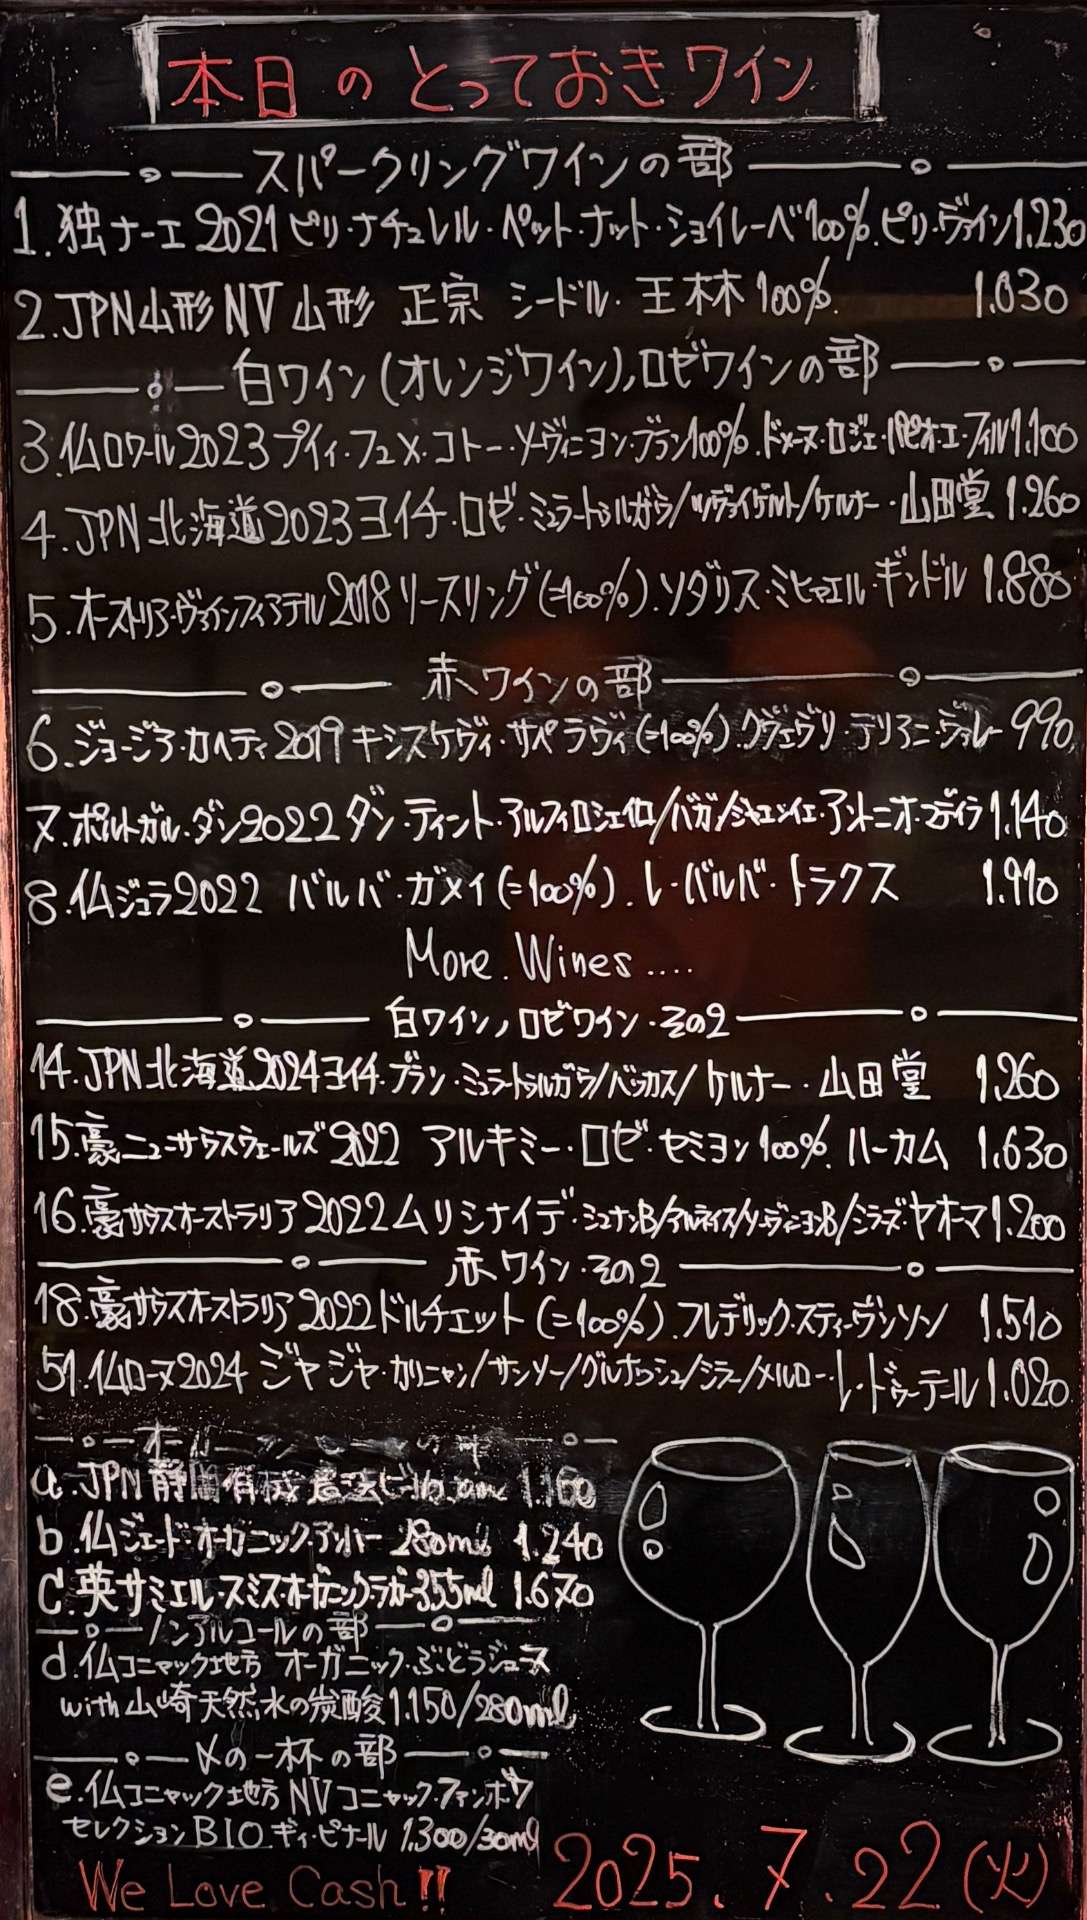 本日のとっておきワイン
スパークリングワインの部
1.独ナーエ2021ピリ・ナチュレル・ペット・ナット・ショイレーベ100%.ピリ・ヴァイン1.230
2.JPN山形NV山形 正宗 シードル・王林100%. 1.030
白ワイン(オレンジワイン),ロゼワインの部
3.仏ロワール2023プイィ・フュメ・コトー・ソーヴィニヨン・ブラン100%.ドメーヌ・ロジェ・ フィル1.100
4.JPN北海道2023ヨイチ・ロゼ・ミュラートゥルガウ/ツヴァイゲルト/ケルナー・山田堂 1.260
5.オーストリア・ヴァインフィアテル2018リースリング(=100%).ソダリス・ミヒャエル・ギンドル 1.880
赤ワインの部
6.ジョージア・カヘティ2019キシスケヴィ・サペラヴィ(=100%).クヴェヴリ・テリアニ・ヴァレー990
7.ポルトガル・ダン2022ダン・ティント・アルフロシェイロ/バガ/ジャエン/ アントニオ・マデイラ1.140
8.仏ジュラ2022 バルバ・ガメイ(=100%).レ・バルバ・トラクス 1.910
More.Wines....
白ワイン,ロゼワイン・その2
14.JPN北海道2024ヨイチ・ブラン・ミュラートゥルガウ/バッカス/ケルナー・山田堂 1.260
15.豪ニューサウスウェールズ2022 アルキミー・ロゼ・セミヨン100%.ハーカム 1.630
16.豪サウスオーストラリア2022ムリシナイデ・シュナンB/アルネイス/ソーヴィニヨンB/シラーズ・ヤオーマ1.200
赤ワイン・その2
18.豪サウスオーストラリア2022ドルチェット(=100%).フレデリック・スティーヴンソン 1.510
51.仏ローヌ2024 ジャジャ・カリニャン/サンソー/グルナッシュ/シラー/メルロー・レ・ドゥーテール1.020
a.JPN静岡 1.160
b.仏ジェード・オーガニック・アンバー 280ml 1.240
C.英サミエルスミスオーガニックラガー355ml 1.670
ノンアルコールの部
d.仏コニャック地方 オーガニック・ぶどうジュース
with山崎天然水の炭酸1.150/280ml
〆の一杯の部
e.仏コニャック地方NVコニャック・ファンボワ
セレクションBIO.ギィ・ピナール 1.300/30ml
We Love Cash!!
2025.7.22(火)